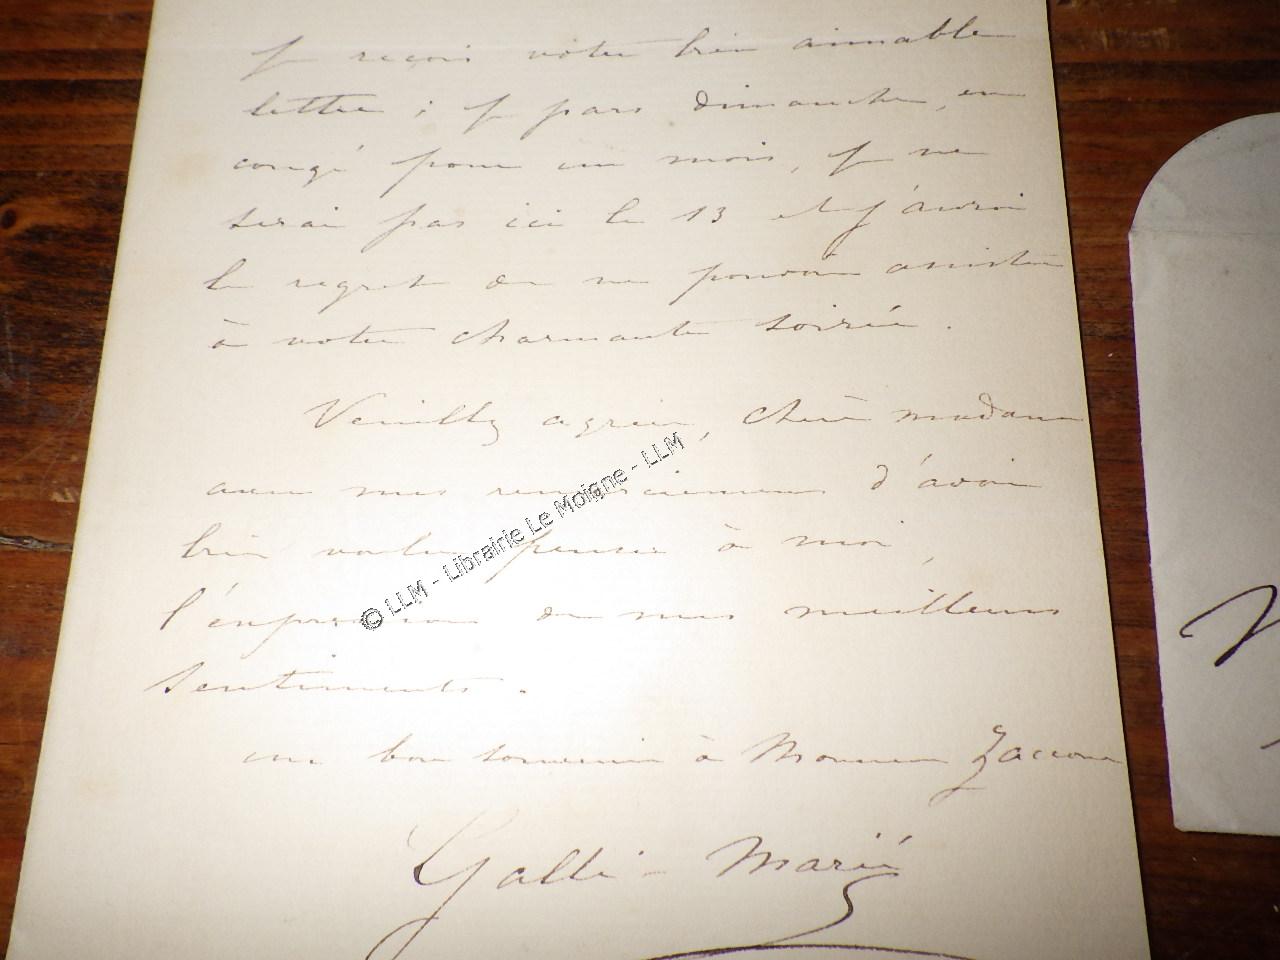 Je reçois votre bien aimable
lettre ; je pars dimanche, en
congé pour un mois, je ne
serai pas ici le 13 et j'aurai
le regret de ne pouvoir assister
à votre charmante soirée.
Veuillez agréer, chère madame
avec mes remerciemens d'avoir
bien voulu penser à moi,
l'expression de mes meilleurs
sentiments.
un bon souvenir à Monsieur Zaccone
Galli-Marié
© LLM - Librairie Le Moigne - LLM